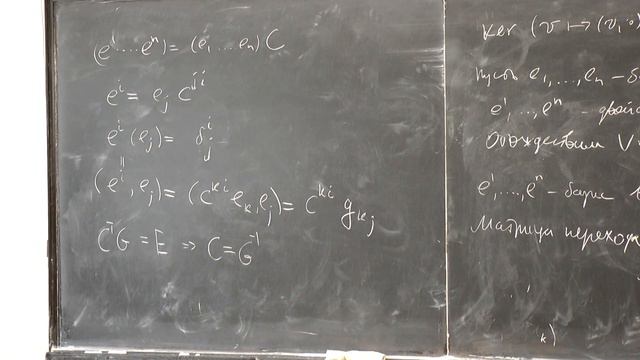 (e¹ ... eⁿ) = (e₁ ... eₙ) C
eⁱ = eⱼ cʲⁱ
eⁱ(eⱼ) = δⁱⱼ
||
(eⁱ, eⱼ) = (cᵏⁱ eₖ, eⱼ) = cᵏⁱ gₖⱼ
CᵀG = E ⇒ C = G⁻¹
Ker (v ↦ (v, ·)
Пусть e₁, ..., eₙ – б
e¹, ..., eⁿ – двой
Отождествим V
e¹, ..., eⁿ – базис
Матрица переход
к)